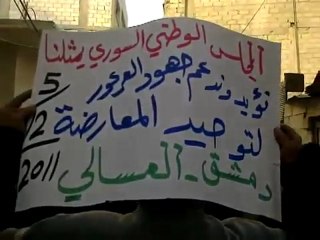 المجلس الوطني السوري يمثلنا
نؤيد وندعم جهود العرعور
لتوحيد المعارضة
دمشق - العسالي
5
12
2011